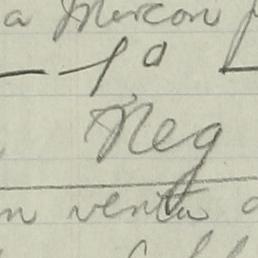 a Mercon
— 1ª —
Neg
n venta